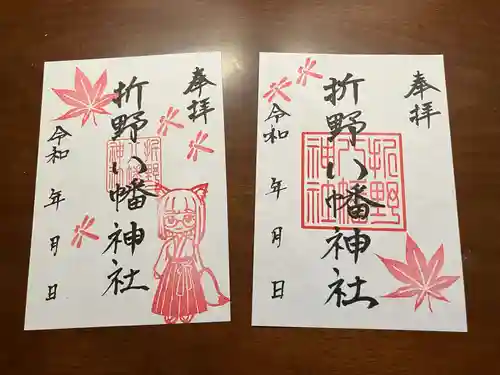 奉拝
折野八幡神社
折野八幡神社
令和 年 月 日
奉拝
折野八幡神社
折野八幡神社
令和 年 月 日